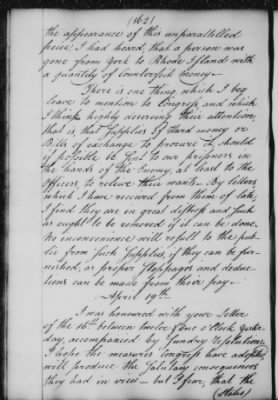 (162)
the appearance of this unparallelled
piece I had heard, that a person was
gone from York to Rhode Island with
a quantity of Counterfeit money.
There is one thing, which I beg
leave to mention to Congress, and which
I think highly deserving their attention,
that is, that Supplies of Hard money or
Bills of exchange to procure it, should
if possible be sent to our prisoners in
the hands of the Enemy, at least to the
Officers, to relieve their wants. By letters
which I have received from them of late,
I find they are in great distress and such
as ought to be removed if it can be done.
No inconvenience will result to the pub-
lic from such Supplies, if they can be fur-
nished, as proper stoppages and deduc-
tions can be made from their pay.
April 19th.
I was honoured with your Letter
of the 18th between twelve & One o'Clock yester-
day, accompanied by sundry Resolutions.
I hope the measures Congress have adopted
will produce the Salutary consequences
they had in view — but I fear, that the
(States)